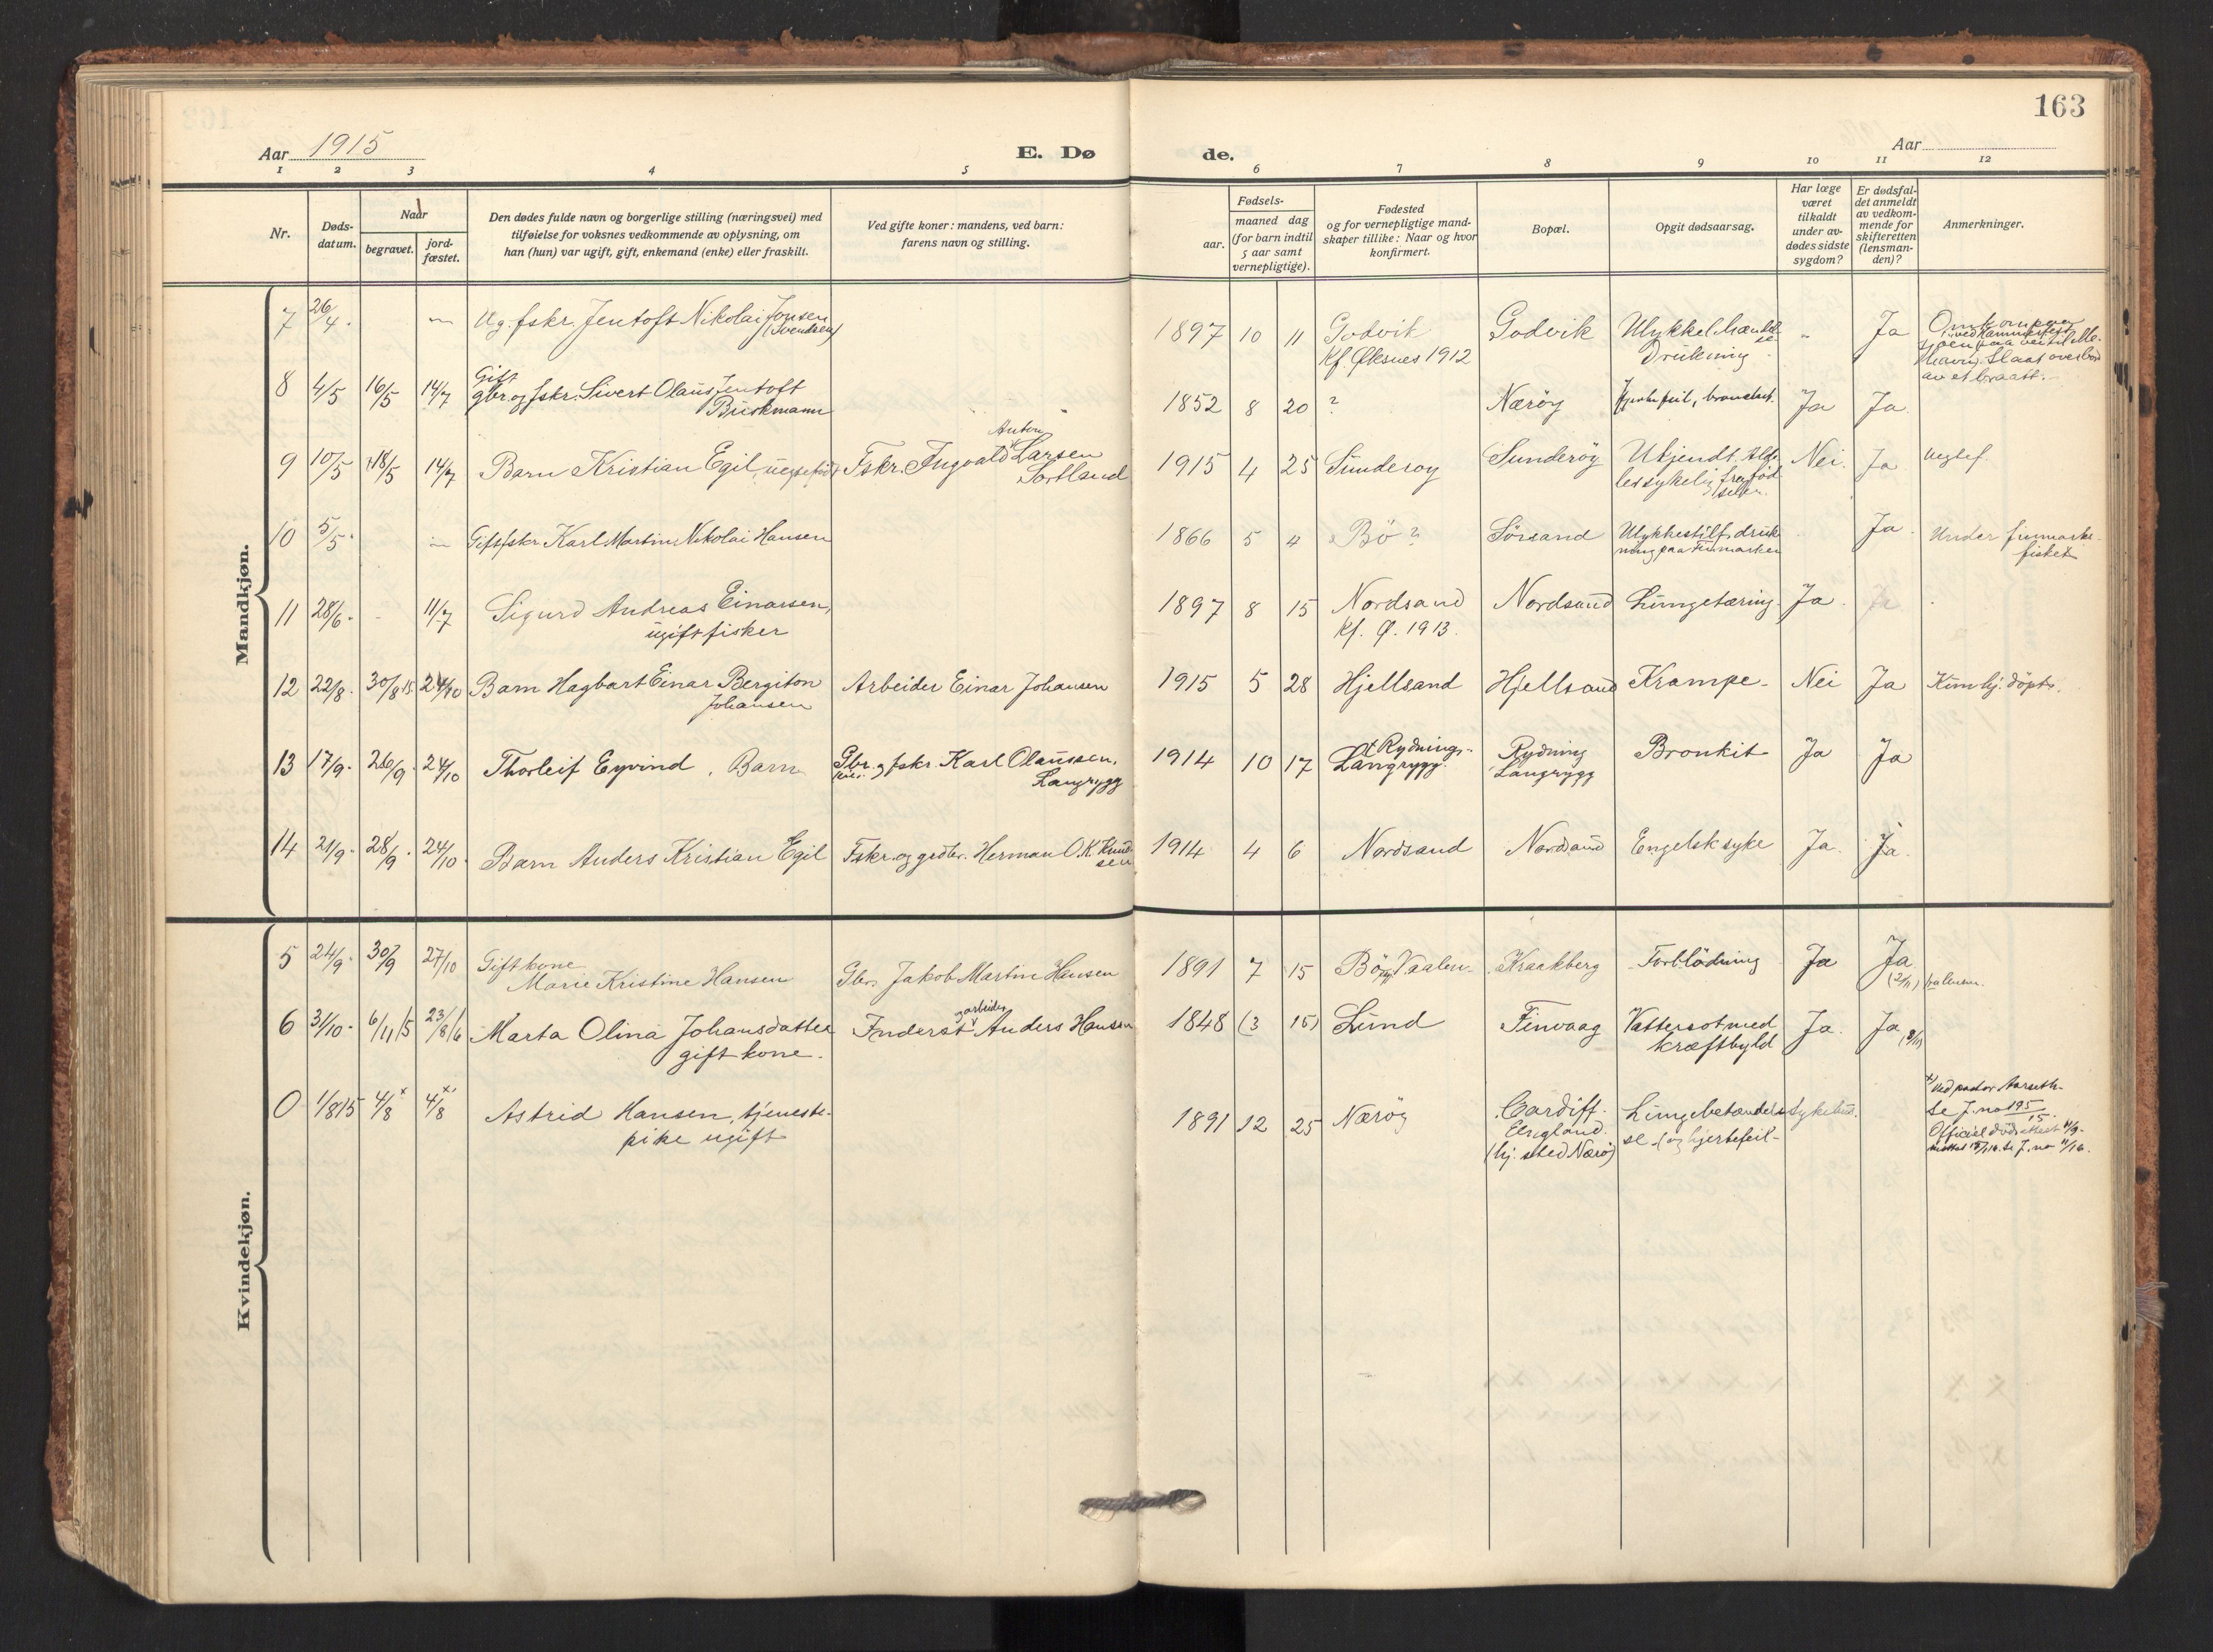 163
Aar 1915
E. Dø
de.
Aar
1 2 3 4 5 6 7 8 9 10 11 12
Nr.
Døds-
datum.
Naar
begravet.
jord-
fæstet.
Den dødes fulde navn og borgerlige stilling (næringsvei) med
tilføielse for voksnes vedkommende av oplysning, om
han (hun) var ugift, gift, enkemand (enke) eller fraskilt.
Ved gifte koner: mandens, ved barn:
farens navn og stilling.
Fødsels-
aar.
maaned dag
(for barn indtil
5 aar samt
vernepligtige).
Fødested
og for vernepligtige mand-
skaper tillike: Naar og hvor
konfirmert.
Bopæl.
Opgit dødsaarsag.
Har læge
været
tilkaldt
under av-
dødes sidste
sygdom?
Er dødsfal-
det anmeldt
av vedkom-
mende for
skifteretten
(lensman-
den)?
Anmerkninger.
Mandkjøn.
7 26/4. Ug. fskr. Jentoft Nikolai Jonsen
(Svendsen)
1897 10 11 Godvik Godvik Ulykkelihændel
se
Kf. Øksnes 1912 Drukning
Ja Omkom
Slaat overbord
av et braatt.
8 4/5 16/5 14/7 Gift
gbr. og fskr. Sivert Olaus Jentoft
Buskmann
1852 8 20 ? Nærøy Hjertefeil, Ja Ja
9 10/5 18/5 14/7 Barn Kristian Egil Fskr. Ingvald Larsen
Anton
Sortland
1915 4 25 Sunderøy Sunderøy Ukjendt. Alde
les sykelig fra fød
selen.
Nei. Ja
10 5/5. Gift fskr. Karl Martin Nikolai Hansen
1866 5 4 Bö? Sörsand Ulykkestilf. druk
ning paa Finmarken
Ja. Under finmarks-
fisket
11 28/6. - 11/7 Sigurd Andreas Einarsen,
ugift fisker
1897 8 15 Nordsand Nordsand Lungetæring. Ja. Ja
Kf. Ø. 1913.
12 22/8. 30/8 15. 24/10 Barn Hagbart Einar Bergiton
Johansen
Arbeider Einar Johansen
1915 5 28 Hjellsand Hjellsand Krampe- Nei Ja Kun hj. döpt.
13 17/9. 26/9. 24/10 Thorleif Eyvind. Barn Gbr. og fskr. Karl Olaussen,
Langrygg
1914 10 17 Rydnings-
Langrygg. Rydning
Langrygg
Bronkit Ja Ja
14 21/9. 28/9. 24/10. Barn Anders Kristian Egil Fskr. og grdbr. Herman O. K. Knud
sen
1914 4 6 Nordsand Nordsand Engelsk syke Ja. Ja.
Kvindekjøn.
5 24/9. 30/9 27/10 Gift kone
Marie Kristine Hansen Gbr. Jakob Martin Hansen
1891 7 15 Bö, Vaalen. Kraakberg Forblödning Ja Ja
(2/11)
6 31/10. 6/11 15 23/8 16 Marta Olina Johansdatter
gift kone.
Inderst Anders Hansen
og arbeider
1848 (3 15) Lund Finvaag Vattersot med
kræftbyld
Ja. Ja
0 1/8 15 4/8 x 4/8 x Astrid Hansen, tjeneste-
pike ugift
1891 12 25 Nærøy Cardiff.
England.
(hj. sted Nærö)
Lungebetændel-
se (og hjertefeil-
Sykehus.
x) Ved pastor Aarseth-
Se J. no 195/15.
Officiel dødsattest
mottat Se J. no